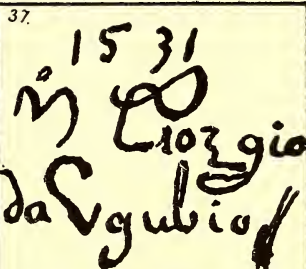 37.
1531
Mº Giorgio
da Ugubio